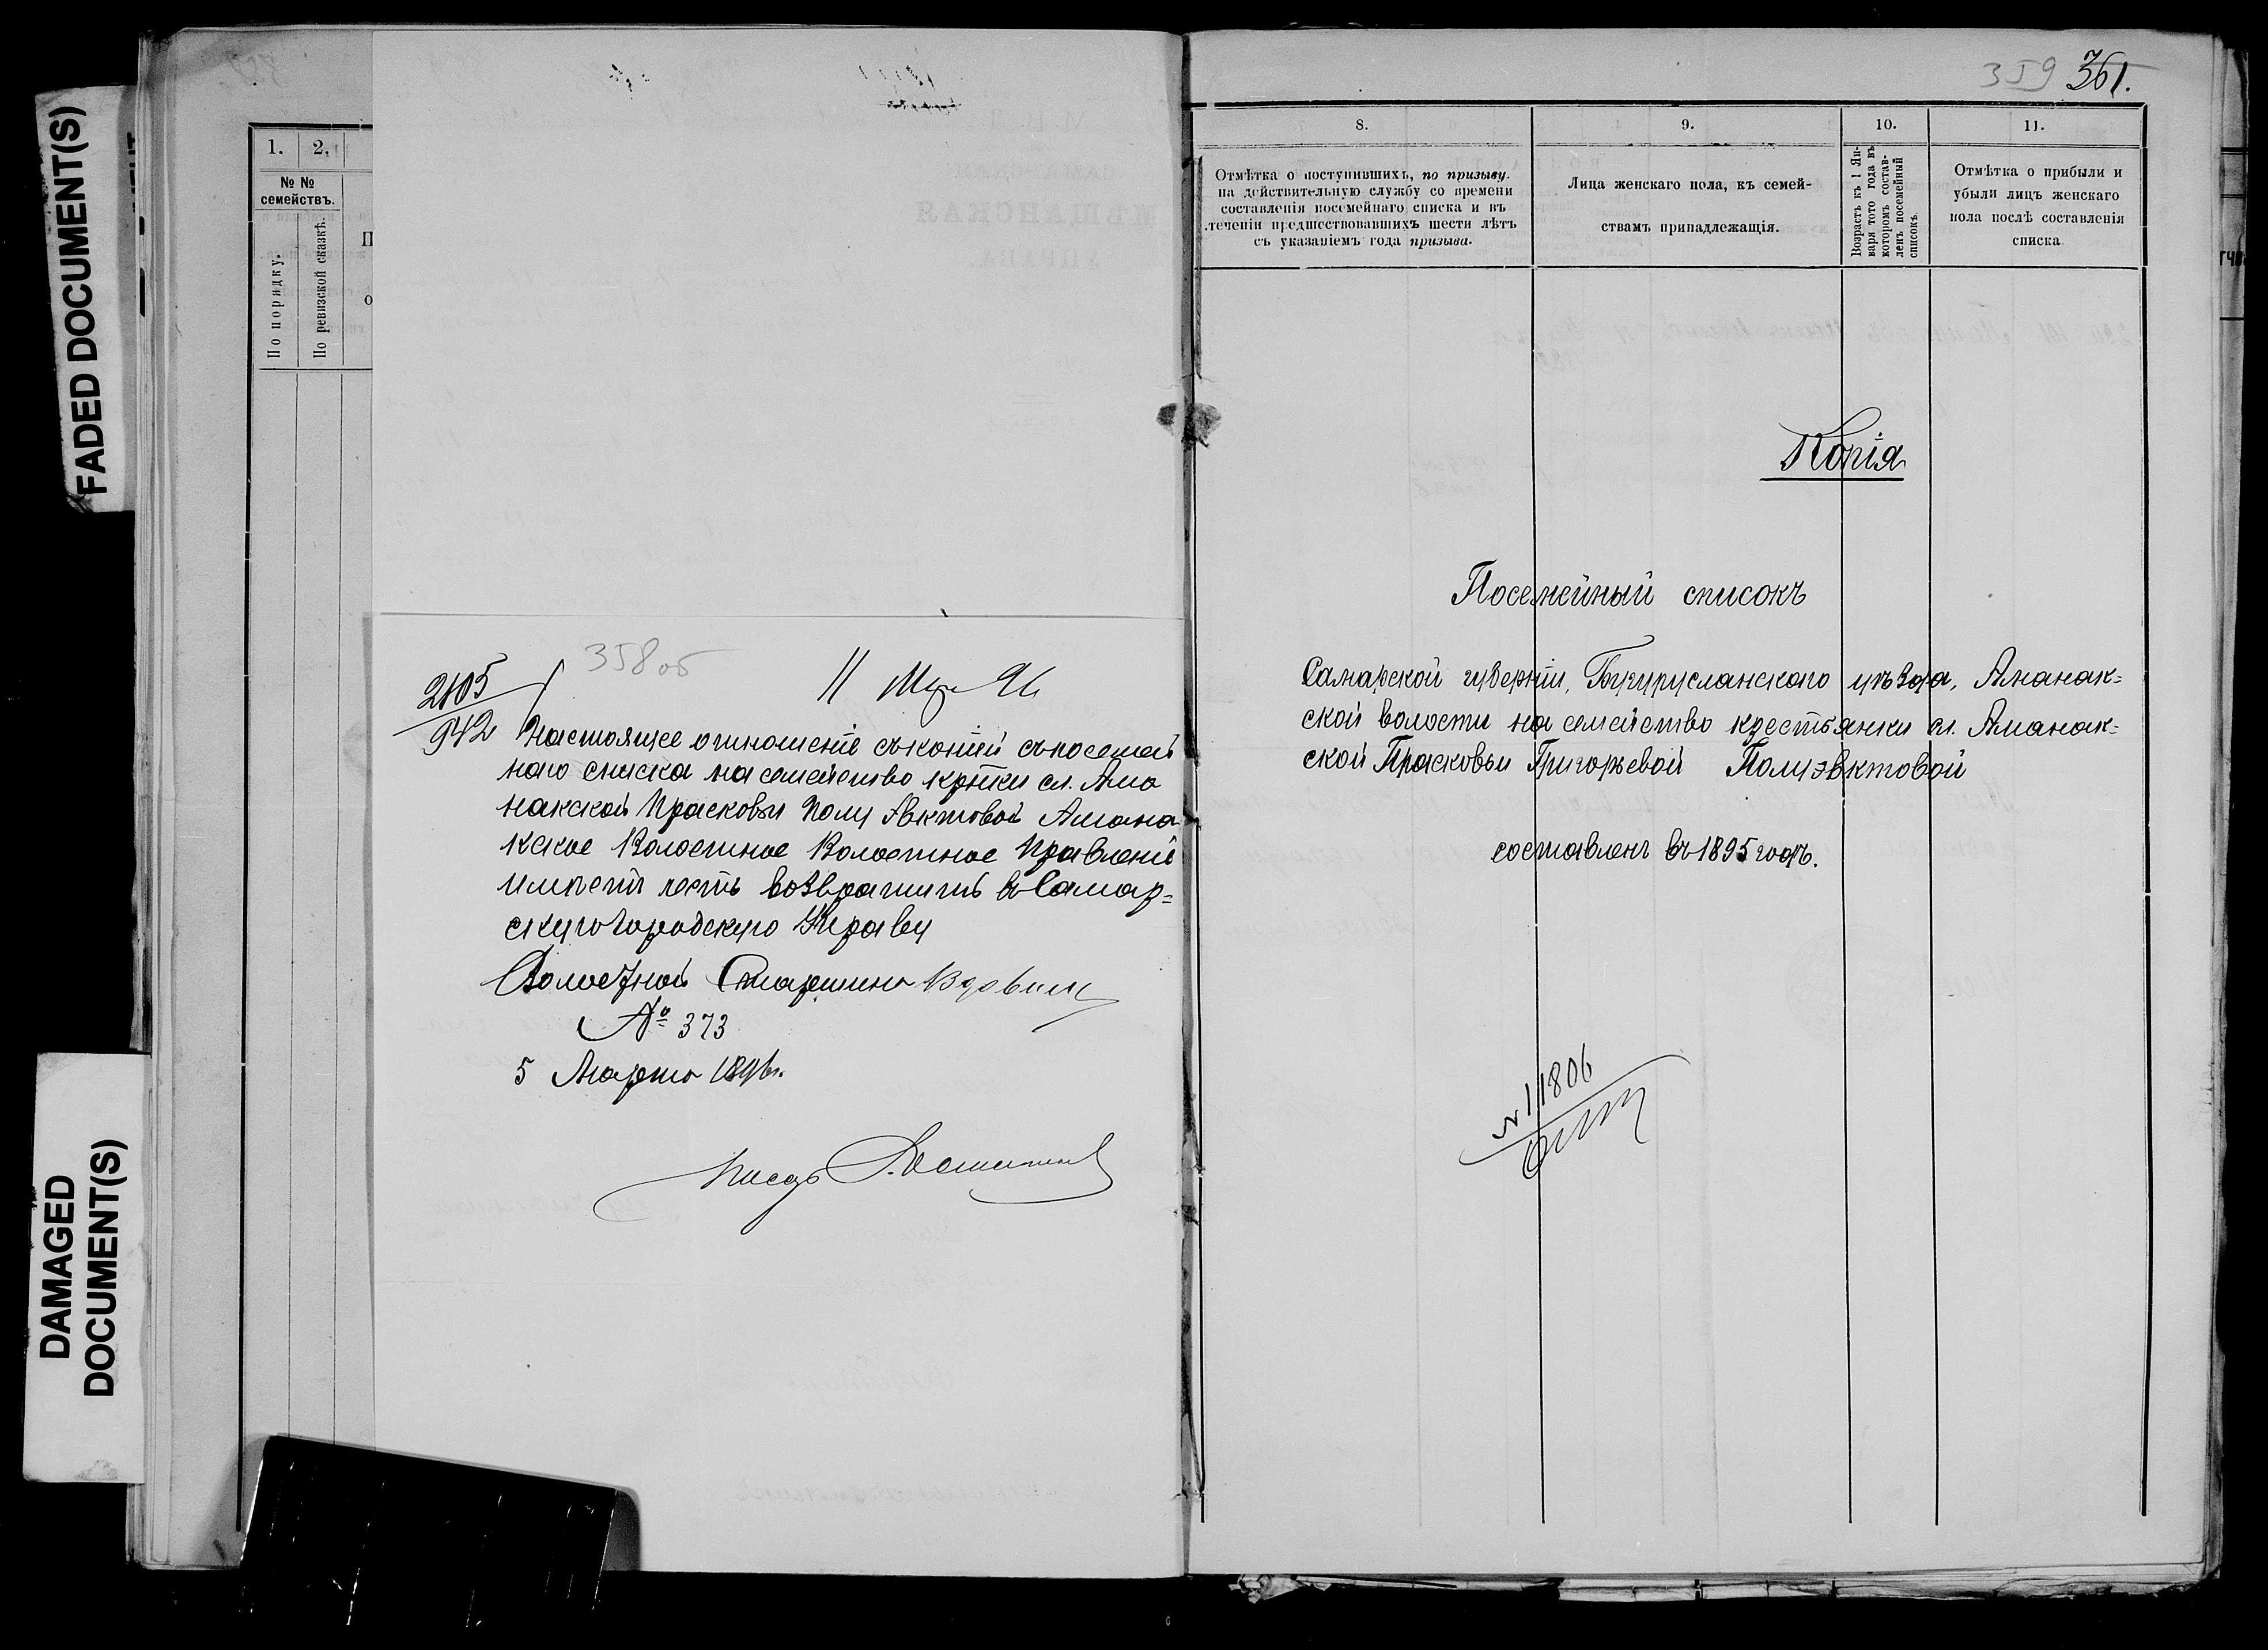 FADED DOCUMENT(S)
DAMAGED
DOCUMENT(S)
1. 2.
№ №
семействъ.
По порядку.
По ревизской сказкѣ.
358об
2105
942
11 Мрт 96
Настоящее отношеніе съ копіей съ посемей
наго списка на семейство кртки сл. Ама
накской Прасковьи Полуэвктовой Амана
кское Волостное Волостное Правленіе
имѣетъ честь возвратить въ Самар=
скую Городскую Управу
Волостной Старшина Вдовин
№ 373
5 Марта 1896г.
Писарь
359 361.
8. 9. 10. 11.
Отмѣтка о поступившихъ, по призыву.
на дѣйствительную службу со времени
составленія посемейнаго списка и въ
теченіи предшествовавшихъ шести лѣтъ
съ указаніемъ года призыва.
Лица женскаго пола, къ семей-
ствамъ принадлежащія.
Возрастъ къ 1 Ян-
варя того года въ
которомъ состав-
ленъ посемейный
списокъ.
Отмѣтка о прибыли и
убыли лицъ женскаго
пола послѣ составленія
списка
Копія
Посемейный списокъ
Самарской губерніи, Бугурусланского уѣзда, Аманак=
ской волости на семейство крестьянки сл. Аманак=
ской Прасковьи Григорьевой Полуэвктовой
составленъ въ 1895 годъ.
№ 11806